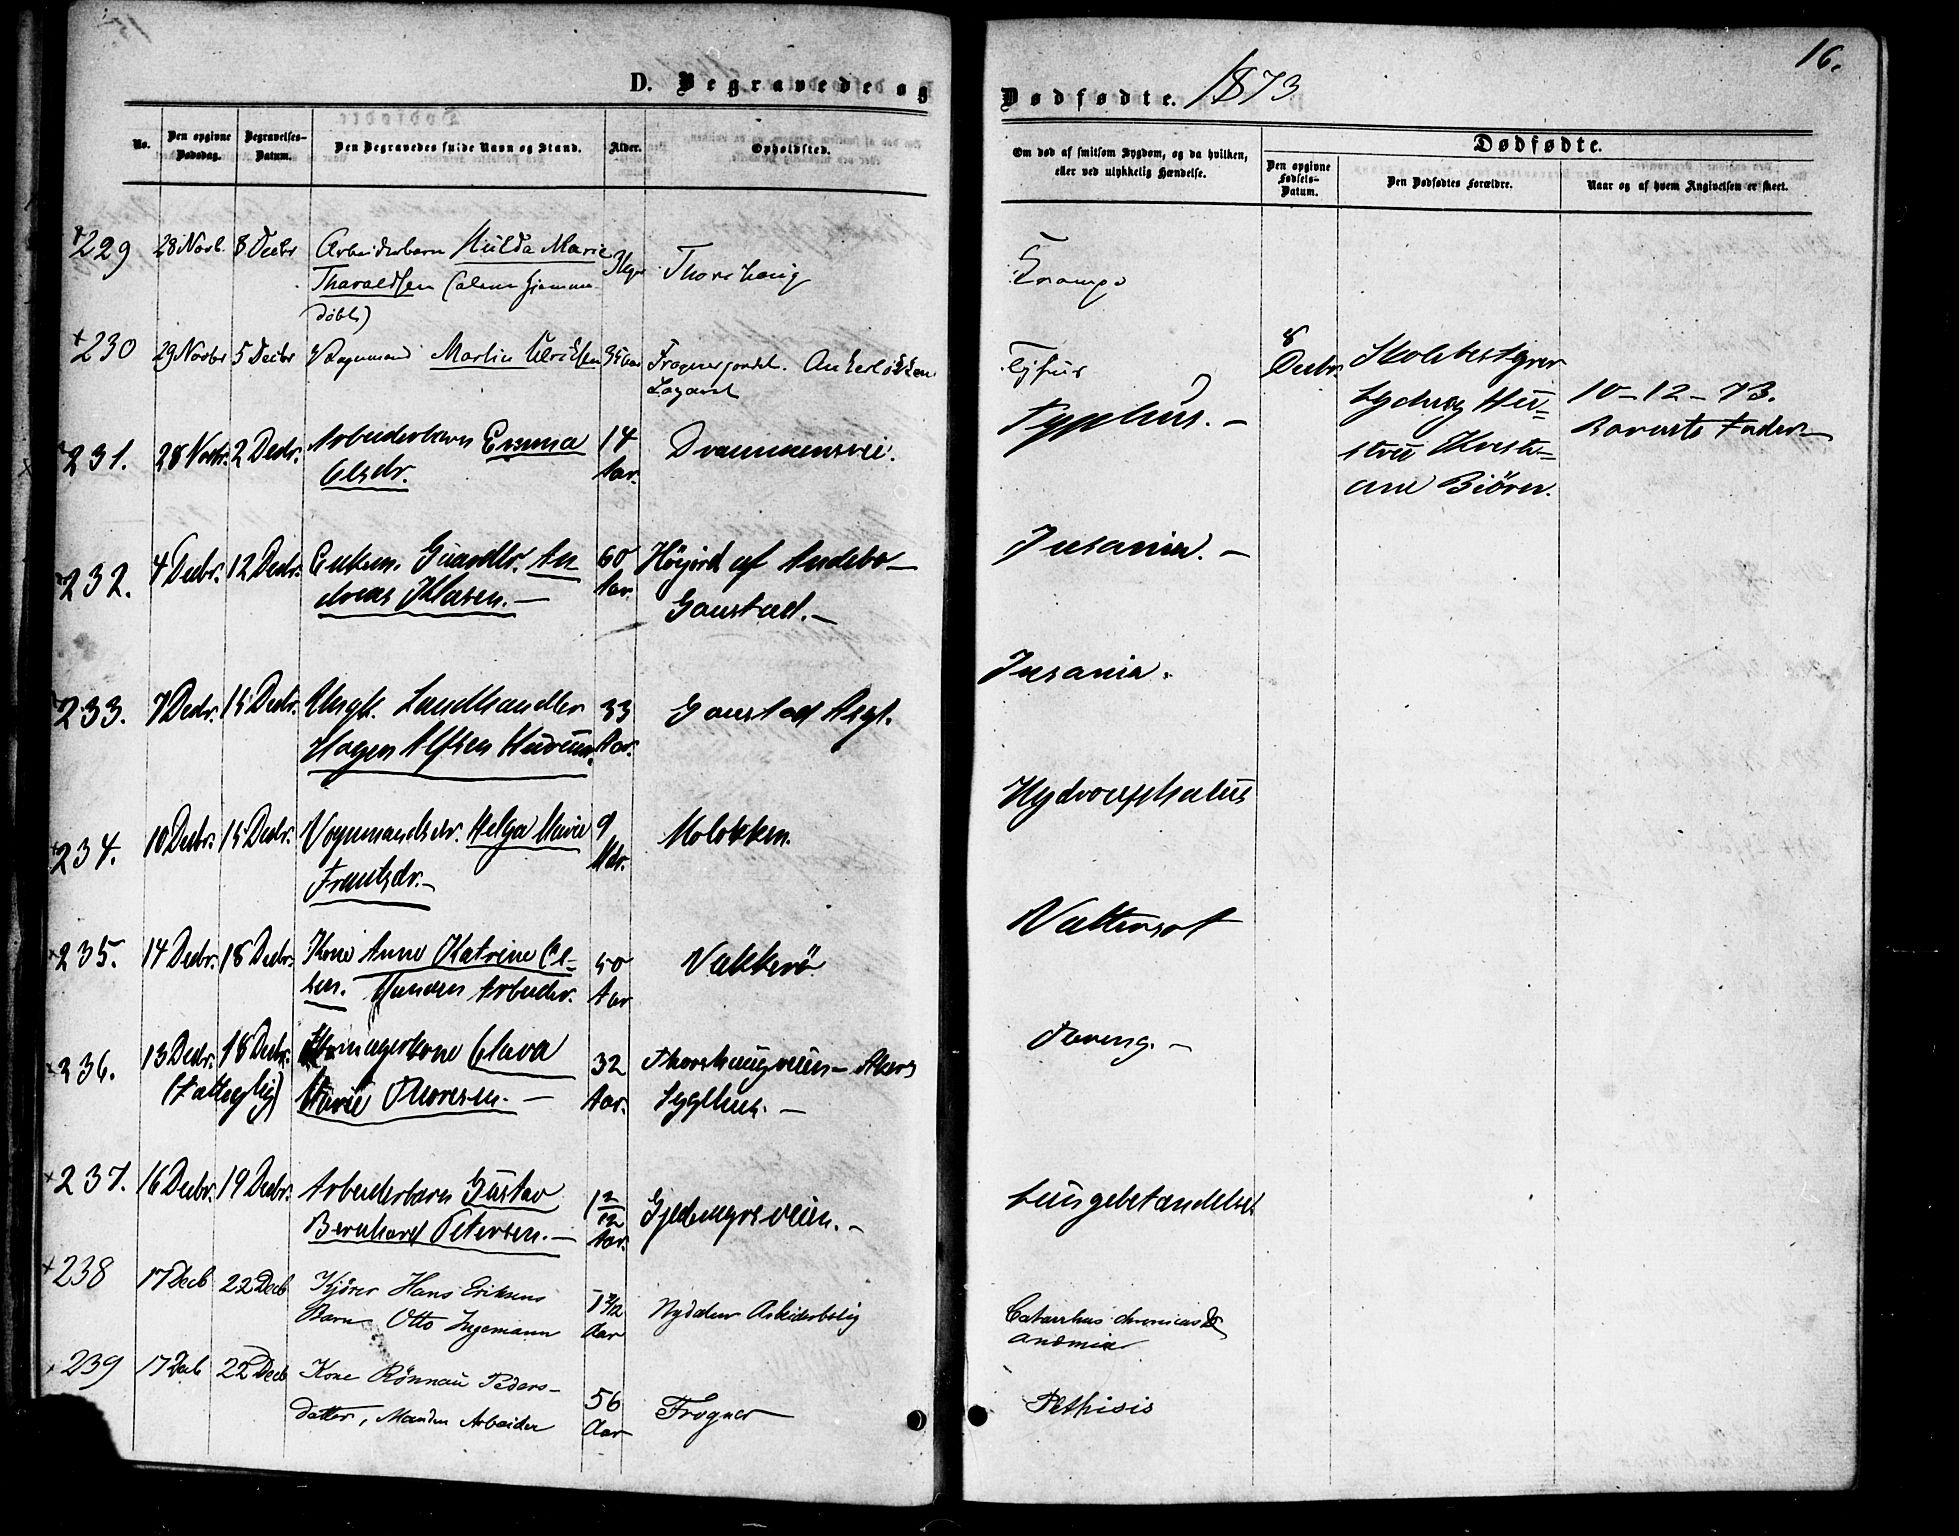 16.
D. Begravede og
Dødfødte. 1873
No.
Den opgivne
Dødsdag.
Begravelses-
Datum.
Den Begravedes fulde Navn og Stand.
Alder.
Opholdsted.
Om død af smitsom Sygdom, og da hvilken,
eller ved ulykkelig Hændelse.
Dødfødte.
Den opgivne
Fødsels-
Datum.
Den Dødfødtes Forældre.
Naar og af hvem Angivelsen er skeet.
229 28 Novb. 8 Decbr Arbeiderbarn Hulda Marie
Tharaldsen (alene hjemme
døbt)
Thorshaug
Krampe
230 29 Novbr 5 Decbr Vognmand Martin Ulriksen 35 Aar
Frognerjordet. Ankerløkken
Lazaret
Tyfus
8
Decbr.
Skolebestyrer
Ludvig Hu-
stru Kristi-
ane Biörn.
10-12-73.
Barnets Fader
231. 28 Novbr. 2 Decbr. Arbeiderbarn Emma
Olsdr.
14
Aar.
Drammensvei.
Typhus. -
232. 4 Decbr. 12 Decbr. Enkem. Gaardbr. An
dreas Klasen. -
60
Aar.
Höijord af Andebo -
Gaustad. -
Insania. -
233. 7 Decbr. 15 Decbr. Ungk. Landhandler
Hagen Alfsen Hurum.
33
Aar.
Gaustad Asyl.
Insania.
234. 10 Decbr. 15 Decbr. Vognmandsdr. Helga Marie
Frantsdr. -
9
Mdr.
Molökken.
Hydrocephalus
235. 14 Decbr. 18 Decbr. Kone Anne Katrine Ol-
sen. Manden Arbeider.
50
Aar
Vækkerö
Vattersot
236. 13 Decbr. 18 Decbr.
(Fattoglig)
Olava
Marie Thoresen. -
32
Aar.
Thorshaugveien - Akers
Sygehus. -
237. 16 Decbr. 19 Decbr. Arbeiderbarn Gustav
Bernhard Petersen. -
1 2/12
Aar.
Gjedemyrsveien. -
Lungebetændelse
238 17 Decb 22 Decb Kjörer Hans Eriksens
Barn Otto Ingemann
1 2/12
Aar
Nydalen Arbeiderbolig
Catarrhus chronicus &
anæmia
239 17 Decb 22 Decb Kone Rönnau Peders-
datter, Manden Arbeider
56
Aar
Frogner
Phthisis